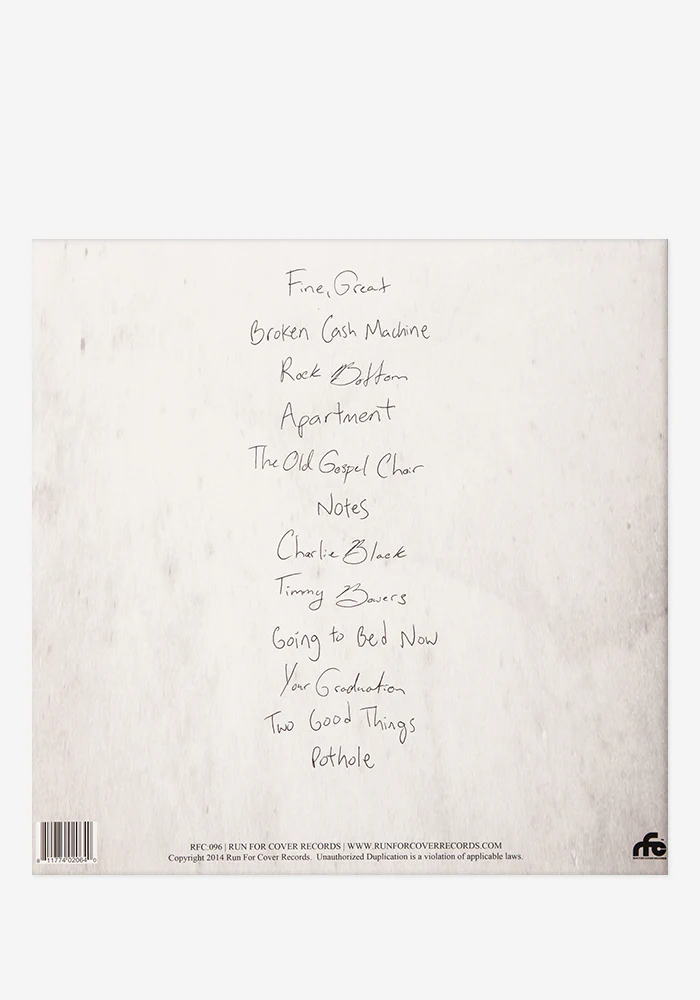 Fine, Great
Broken Cash Machine
Rock Bottom
Apartment
The Old Gospel Choir
Notes
Charlie Black
Timmy Bowers
Going to Bed Now
Your Graduation
Two Good Things
Pothole
8 11774 02064 0
RFC:096 | RUN FOR COVER RECORDS | WWW.RUNFORCOVERRECORDS.COM
Copyright 2014 Run For Cover Records. Unauthorized Duplication is a violation of applicable laws.
rfc
RUN FOR COVER RECORDS